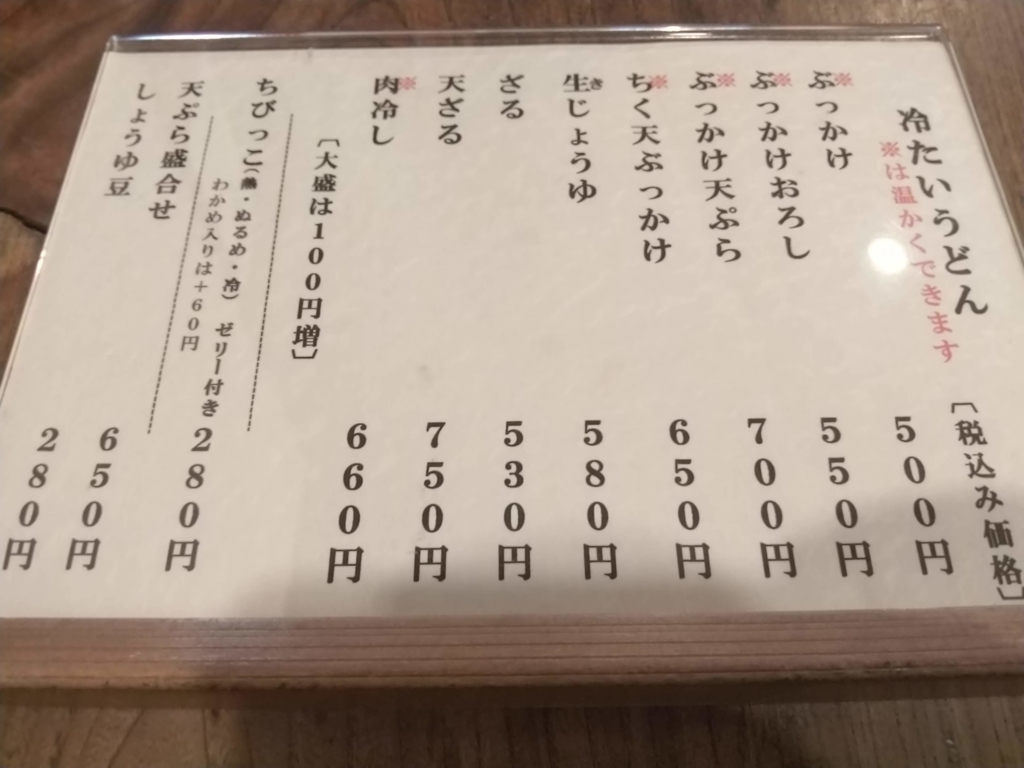 冷たいうどん
※は温かくできます
〔税込み価格〕
※ぶっかけ 500円
※ぶっかけおろし 550円
※ぶっかけ天ぷら 700円
※ちく天ぶっかけ 650円
生(き)じょうゆ 580円
ざる 530円
天ざる 750円
※肉冷し 660円
〔大盛は100円増〕
ちびっこ(熱・ぬるめ・冷) ゼリー付き 280円
わかめ入りは+60円
天ぷら盛合せ 650円
しょうゆ豆 280円